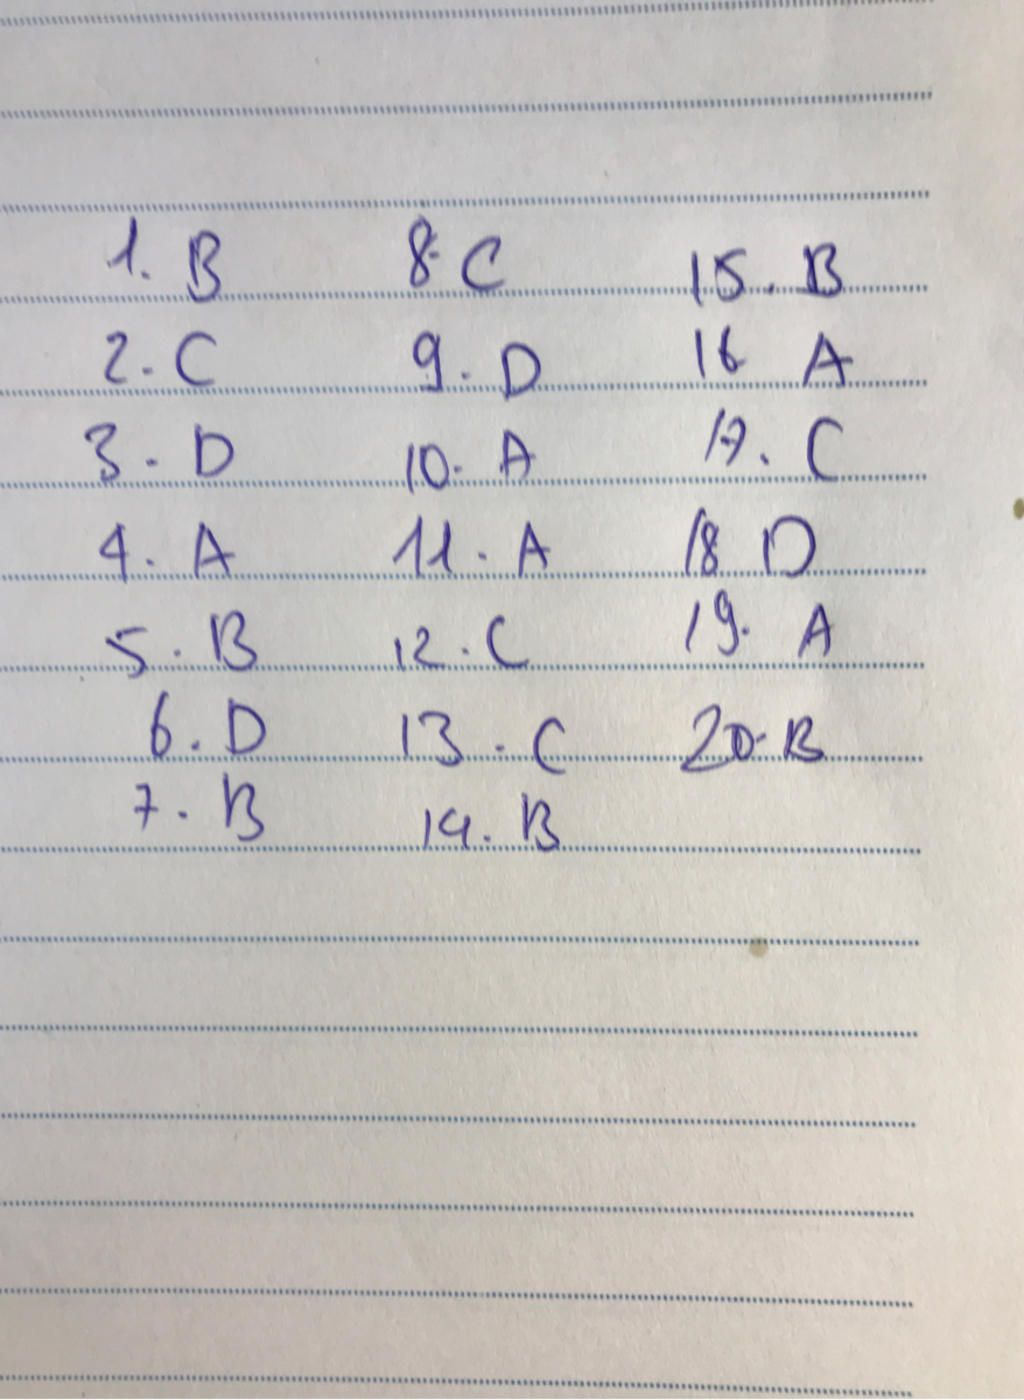 1. B
2. C
3. D
4. A
5. B
6. D
7. B
8. C
9. D
10. A
11. A
12. C
13. C
14. B
15. B
16 A
17. C
18 D
19. A
20. B